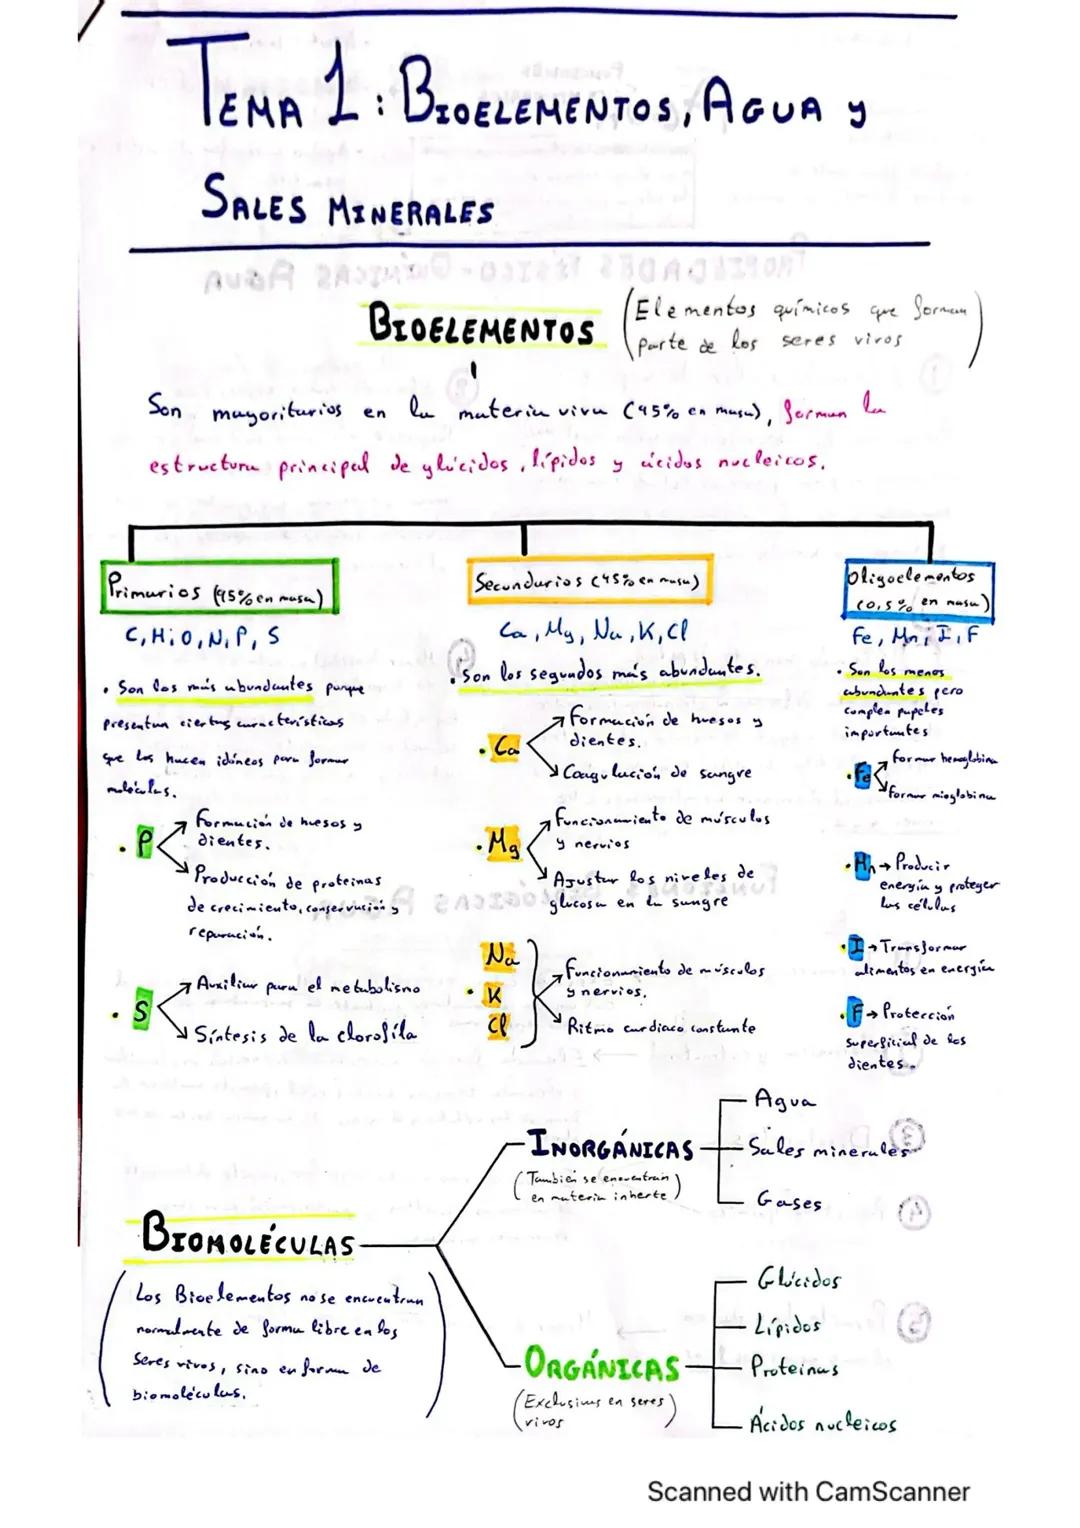 TEMA 1: BIOELEMENTOS, AGUA y
SALES MINERALES
BIOELEMENTOS
(Elementos químicos que forman
parte de los seres vivos)
Son mayoritarios en la materia viva (95% en masa), forman la
estructura principal de glúcidos, lípidos y ácidos nucleicos.
Primarios (95% en masa)
C, H, O, N, P, S
• Son los más abundantes porque
presentan ciertas características
que los hacen idóneos para formar
moléculas.
• P
Formación de huesos y
dientes.
Producción de proteinas
de crecimiento, conservación y
reparación.
• S
Auxiliar para el metabolismo
Síntesis de la clorofila
Secundarios (45% en masa)
Ca, Mg, Na, K, Cl
• Son los segundos más abundantes.
• Ca
Formación de huesos y
dientes.
Coagulación de sangre
• Mg
Funcionamiento de músculos
y nervios
Ajustar los niveles de
glucosa en la sangre
Na
• K
Cl
Funcionamiento de músculos
y nervios.
Ritmo cardiaco constante
Oligoelementos
(0,5% en masa)
Fe, Mn, I, F
• Son los menos
abundantes pero
cumplen papeles
importantes
• Fe
Formar hemoglobina
formar mioglobina
• Mn → Producir
energía y proteger
las células
• I → Transformar
alimentos en energía
• F → Protección
superficial de los
dientes.
BIOMOLÉCULAS
(Los Bioelementos no se encuentran
normalmente de forma libre en los
seres vivos, sino en forma de
biomoléculas.)
INORGÁNICAS
(También se encuentran
en materia inherte)
Agua
Sales minerales
Gases
ORGÁNICAS
(Exclusivas en seres
vivos)
Glúcidos
Lípidos
Proteinas
Ácidos nucleicos
Scanned with CamScanner